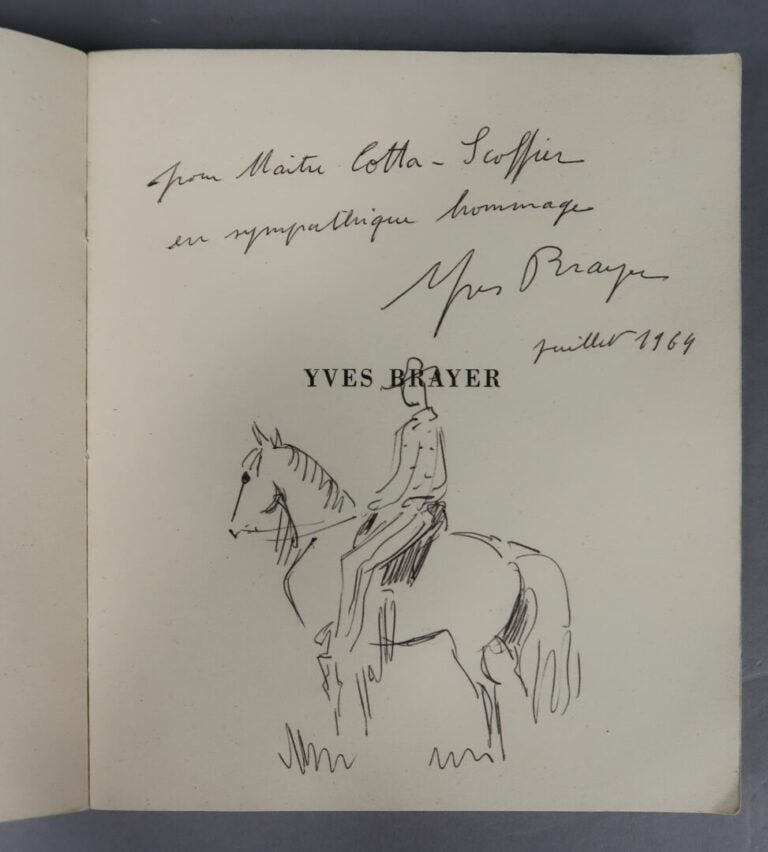 pour Maître Cotta - Scoffier
en sympathique hommage
Yves Brayer
juillet 1964
YVES BRAYER